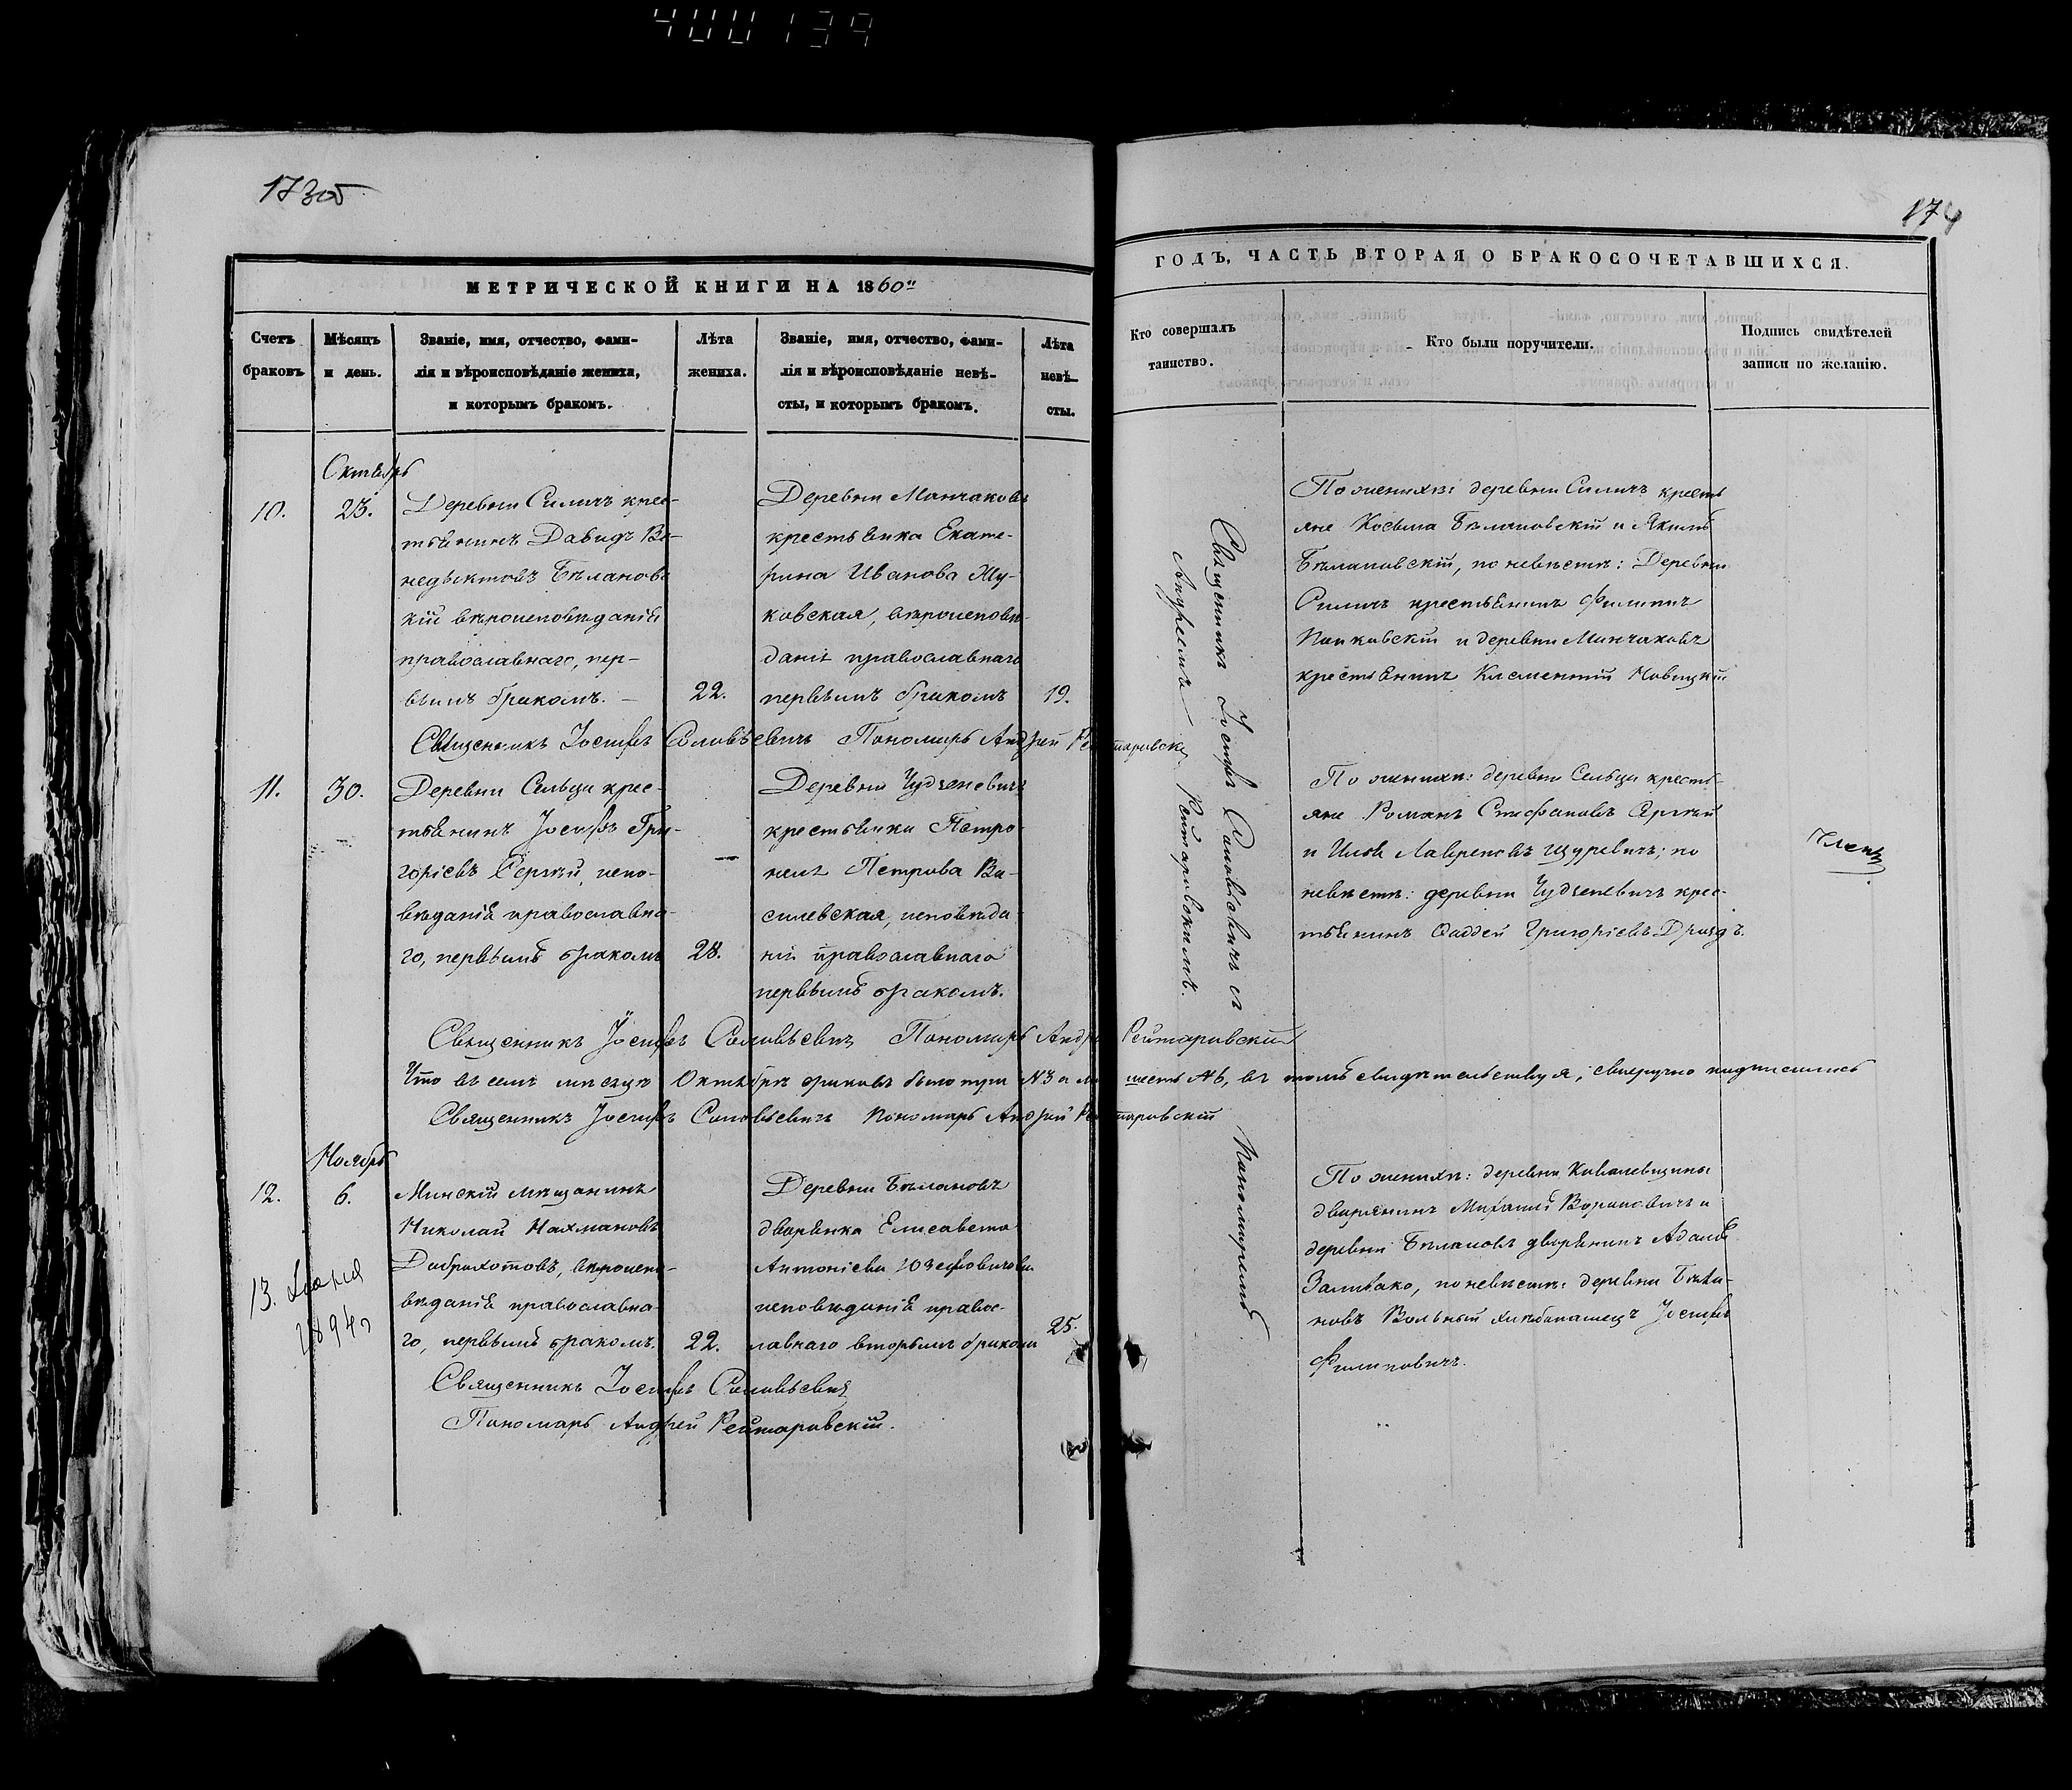 400139
173об
174
МЕТРИЧЕСКОЙ КНИГИ НА 1860й
ГОДЪ, ЧАСТЬ ВТОРАЯ О БРАКОСОЧЕТАВШИХСЯ.
Счетъ
браковъ
Мѣсяцъ
и день.
Званіе, имя, отчество, фами-
лія и вѣроисповѣданіе жениха,
и которымъ бракомъ.
Лѣта
жениха.
Званіе, имя, отчество, фами-
лія и вѣроисповѣданіе невѣ-
сты, и которымъ бракомъ.
Лѣта
невѣ-
сты.
Кто совершалъ
таинство.
Кто были поручители.
Подпись свидѣтелей
записи по желанію.
Октябрь
10.
23.
Деревни Силичъ крес-
тьянинъ Давидъ Ве-
недыктовъ Бѣлановс
кій вѣроисповѣданія
православнаго, пер-
вымъ бракомъ. —
22.
Деревни Манчаковъ
крестьянка Екате-
рина Иванова Жу-
ковская, вѣроисповѣ-
данія православнаго
первымъ бракомъ
19.
Священникъ Іосифъ Соловьевичъ Пономарь Андрей Рейтаровскій
По женихѣ: деревни Силичъ кресть
яне Косьма Бѣлановскій и Якимъ
Бѣлановскій, по невѣстѣ: Деревни
Силичъ крестьянинъ Филиппъ
Папковскій и деревни Манчаковъ
крестьянинъ Клементій Новицкій
Священникъ Іосифъ Соловьевичъ съ
Пономаремъ
Андреемъ Рейтаровскимъ.
11.
30.
Деревни Сельци крес-
тьянинъ Іосифъ Гри-
горіевъ Сергѣй, испо-
вѣданія православна-
го, первымъ бракомъ
28.
Деревни Чудзеневичъ
крестьянка Петро-
неля Петрова Ва-
силевская, исповѣда-
нія православнаго
первымъ бракомъ.
По женихѣ: деревни Сельци кресть-
яне Романъ Стефановъ Сергѣй
и Илья Лавреновъ Щуревичъ; по
невѣстѣ: деревни Чудзеневичъ крес-
тьянинъ Фаддей Григоріевъ Дроздъ.
Членъ
Священникъ Іосифъ Соловьевичъ Пономарь Андрей Рейтаровскій
Что въ семъ мѣсяцѣ Октябрѣ браковъ было три №3 а листъ №, въ томъ свидѣтельствуя, своеручно подписались
Священникъ Іосифъ Соловьевичъ Пономарь Андрей Рейтаровскій
Ноябрь
12.
6.
Минскій мѣщанинъ
Николай Нахмановъ
Доброхотовъ, вѣроиспо-
вѣданія православна-
го, первымъ бракомъ.
22.
Деревни Бѣлановъ
дворянка Елисавета
Антоніева Юзефовичова
исповѣданія правос-
лавнаго вторымъ бракомъ
25.
По женихѣ: деревни Ковалевщины
дворянинъ Михаилъ Вороновичъ и
деревни Бѣлановъ дворянинъ Адамъ
Заливако, по невѣстѣ: деревни Бѣла-
новъ Вольный хлѣбопашецъ Іосифъ
Филиповичъ.
13.
1894г
Священникъ Іосифъ Соловьевичъ
Пономарь Андрей Рейтаровскій.